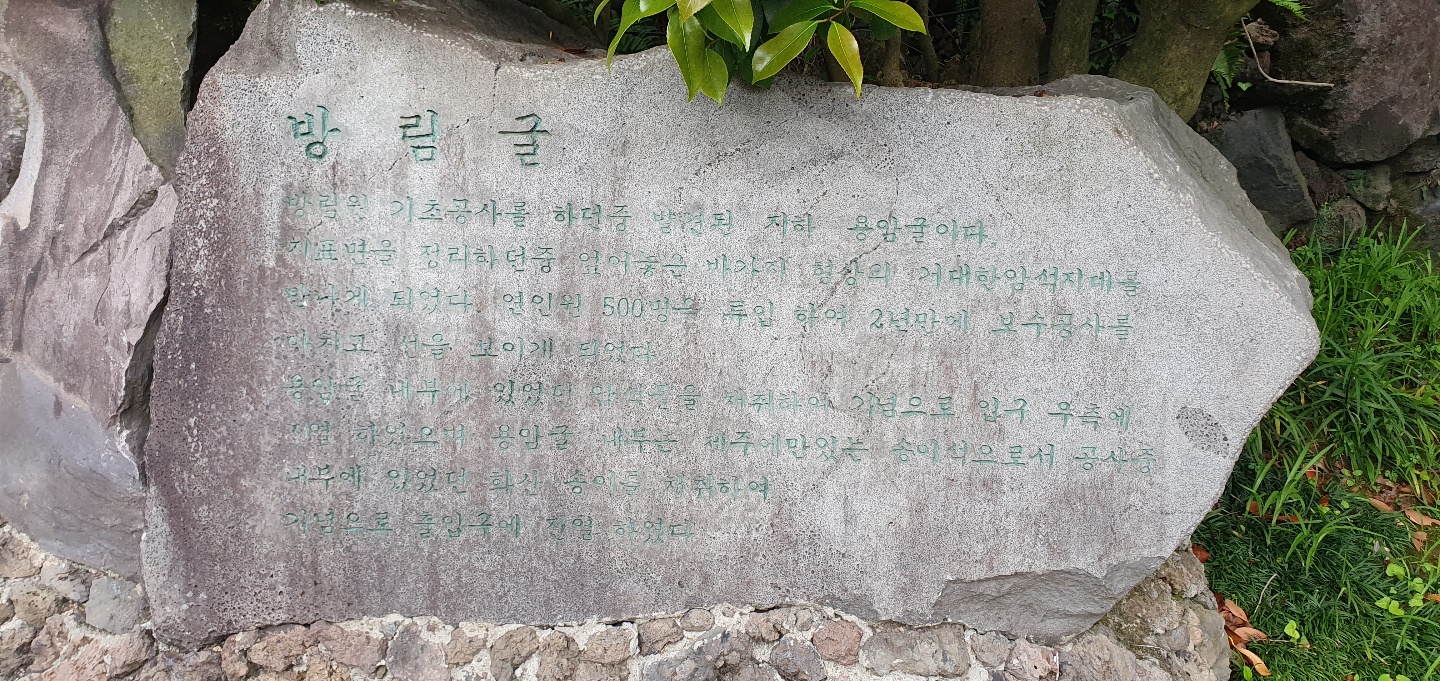 방 림 굴
방림원 기초공사를 하던중 발견된 지하 용암굴이다.
지표면을 정리하던중 엎어놓은 바가지 형상의 거대한암석지대를
만나게 되었다. 연인원 500명을 투입 하여 2년만에 보수공사를
마치고 선을 보이게 되었다.
용암굴 내부에 있었던 암석들을 채취하여 기념으로 입구 우측에
진열 하였으며 용암굴 내부는 제주에만있는 송이석으로서 공사중
내부에 있었던 화산 송이를 채취하여
기념으로 출입구에 진열 하였다.